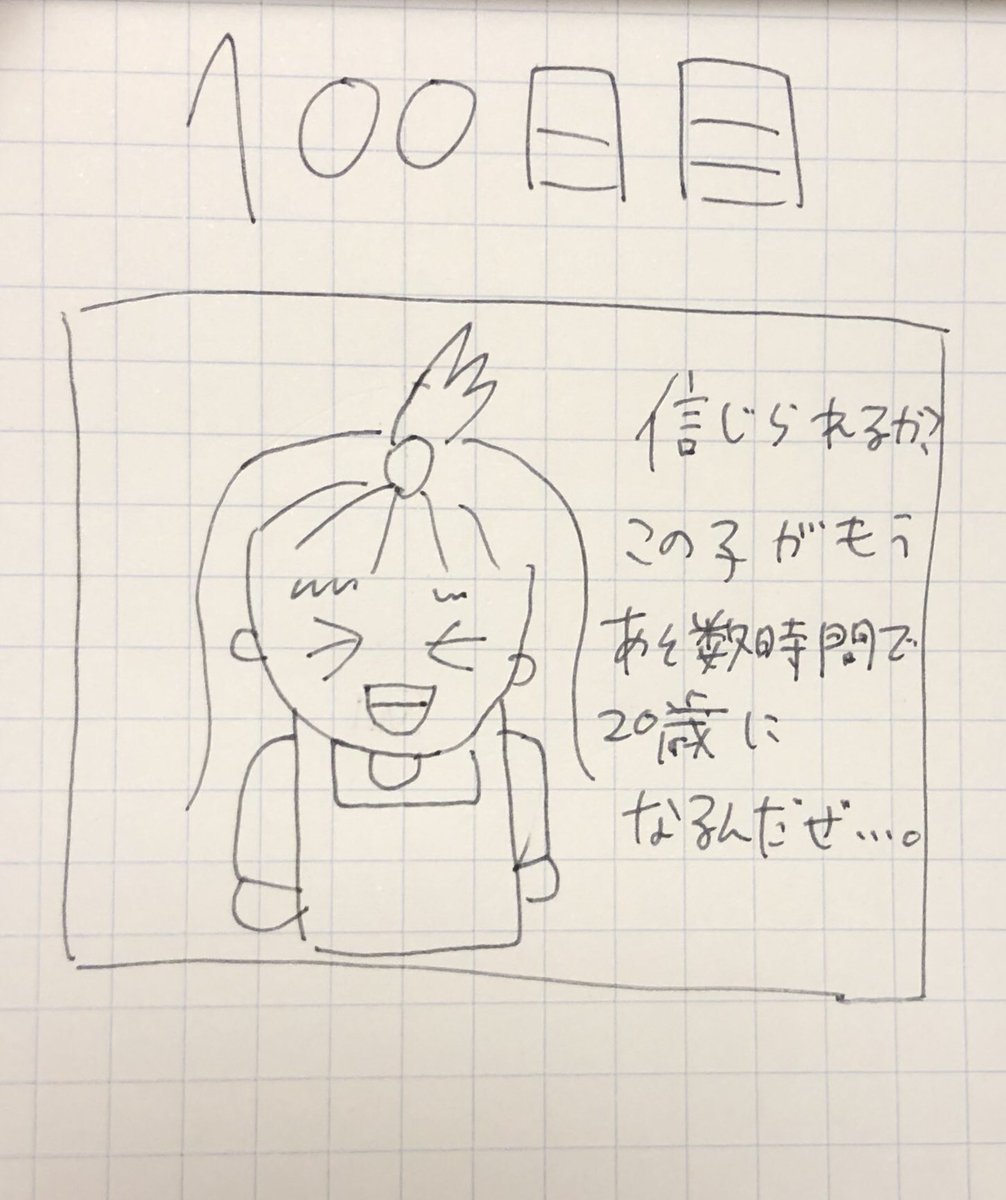 100日目
信じられるか?
この子がもう
あと数時間で
20歳に
なるんだぜ…。